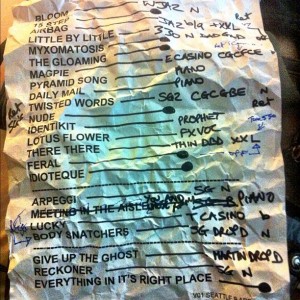 BLOOM N
15 STEP
AIRBAG
LITTLE BY LITTLE
MYXOMATOSIS
THE GLOAMING E CASINO CGCFCE
MAGPIE PIANO
PYRAMID SONG PIANO
DAILY MAIL
TWISTED WORDS SG2 CGCGBE N
NUDE
IDENTIKIT PROPHET
LOTUS FLOWER PXVOC
THERE THERE THIN DDD XXL
FERAL OFF
IDIOTEQUE
ARPEGGI SG N
MEETING IN THE AISLE PIANO
LUCKY CASINO b
BODY SNATCHERS SG DROP D N
GIVE UP THE GHOST MARTIN DROP D
RECKONER SG N
EVERYTHING IN IT'S RIGHT PLACE